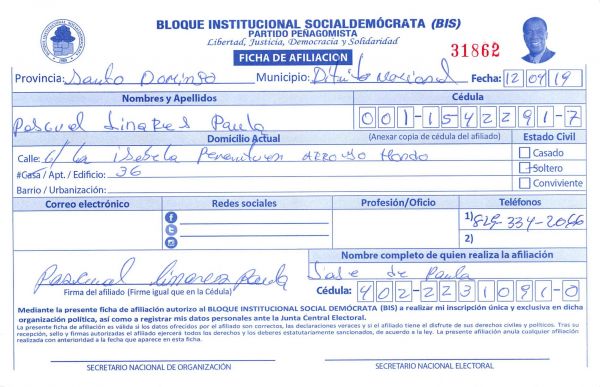 BLOQUE INSTITUCIONAL SOCIALDEMÓCRATA (BIS)
PARTIDO PEÑAGOMISTA
Libertad, Justicia, Democracia y Solidaridad
FICHA DE AFILIACION
31862
Provincia: Santo Domingo Municipio: Distrito Nacional Fecha: 12/04/19
Nombres y Apellidos Cédula
Pascual Linares Paula 001-1542291-7
Domicilio Actual (Anexar copia de cédula del afiliado) Estado Civil
Calle: C/ La Isabela Arroyo Hondo Casado
#Casa / Apt. / Edificio: 36 Soltero
Barrio / Urbanización: Conviviente
Correo electrónico Redes sociales Profesión/Oficio Teléfonos
1) 829-334-2066
2)
Nombre completo de quien realiza la afiliación
Pascual Linares Paula Jose de Paula
Firma del afiliado (Firme igual que en la Cédula) Cédula: 402-2231091-0
Mediante la presente ficha de afiliación autorizo al BLOQUE INSTITUCIONAL SOCIAL DEMÓCRATA (BIS) a realizar mi inscripción única y exclusiva en dicha
organización política, así como a registrar mis datos personales ante la Junta Central Electoral.
La presente ficha de afiliación es válida si los datos ofrecidos por el afiliado son correctos, las declaraciones veraces y si el afiliado tiene el disfrute de sus derechos civiles y políticos. Tras su
recepción, sello y firmas autorizadas el afiliado ejercerá todos los derechos y los deberes estatutariamente sancionados, de acuerdo a la ley. La presente afiliación anula cualquier afiliación
realizada con anterioridad a la fecha que aparece en esta ficha.
SECRETARIO NACIONAL DE ORGANIZACIÓN SECRETARIO NACIONAL ELECTORAL